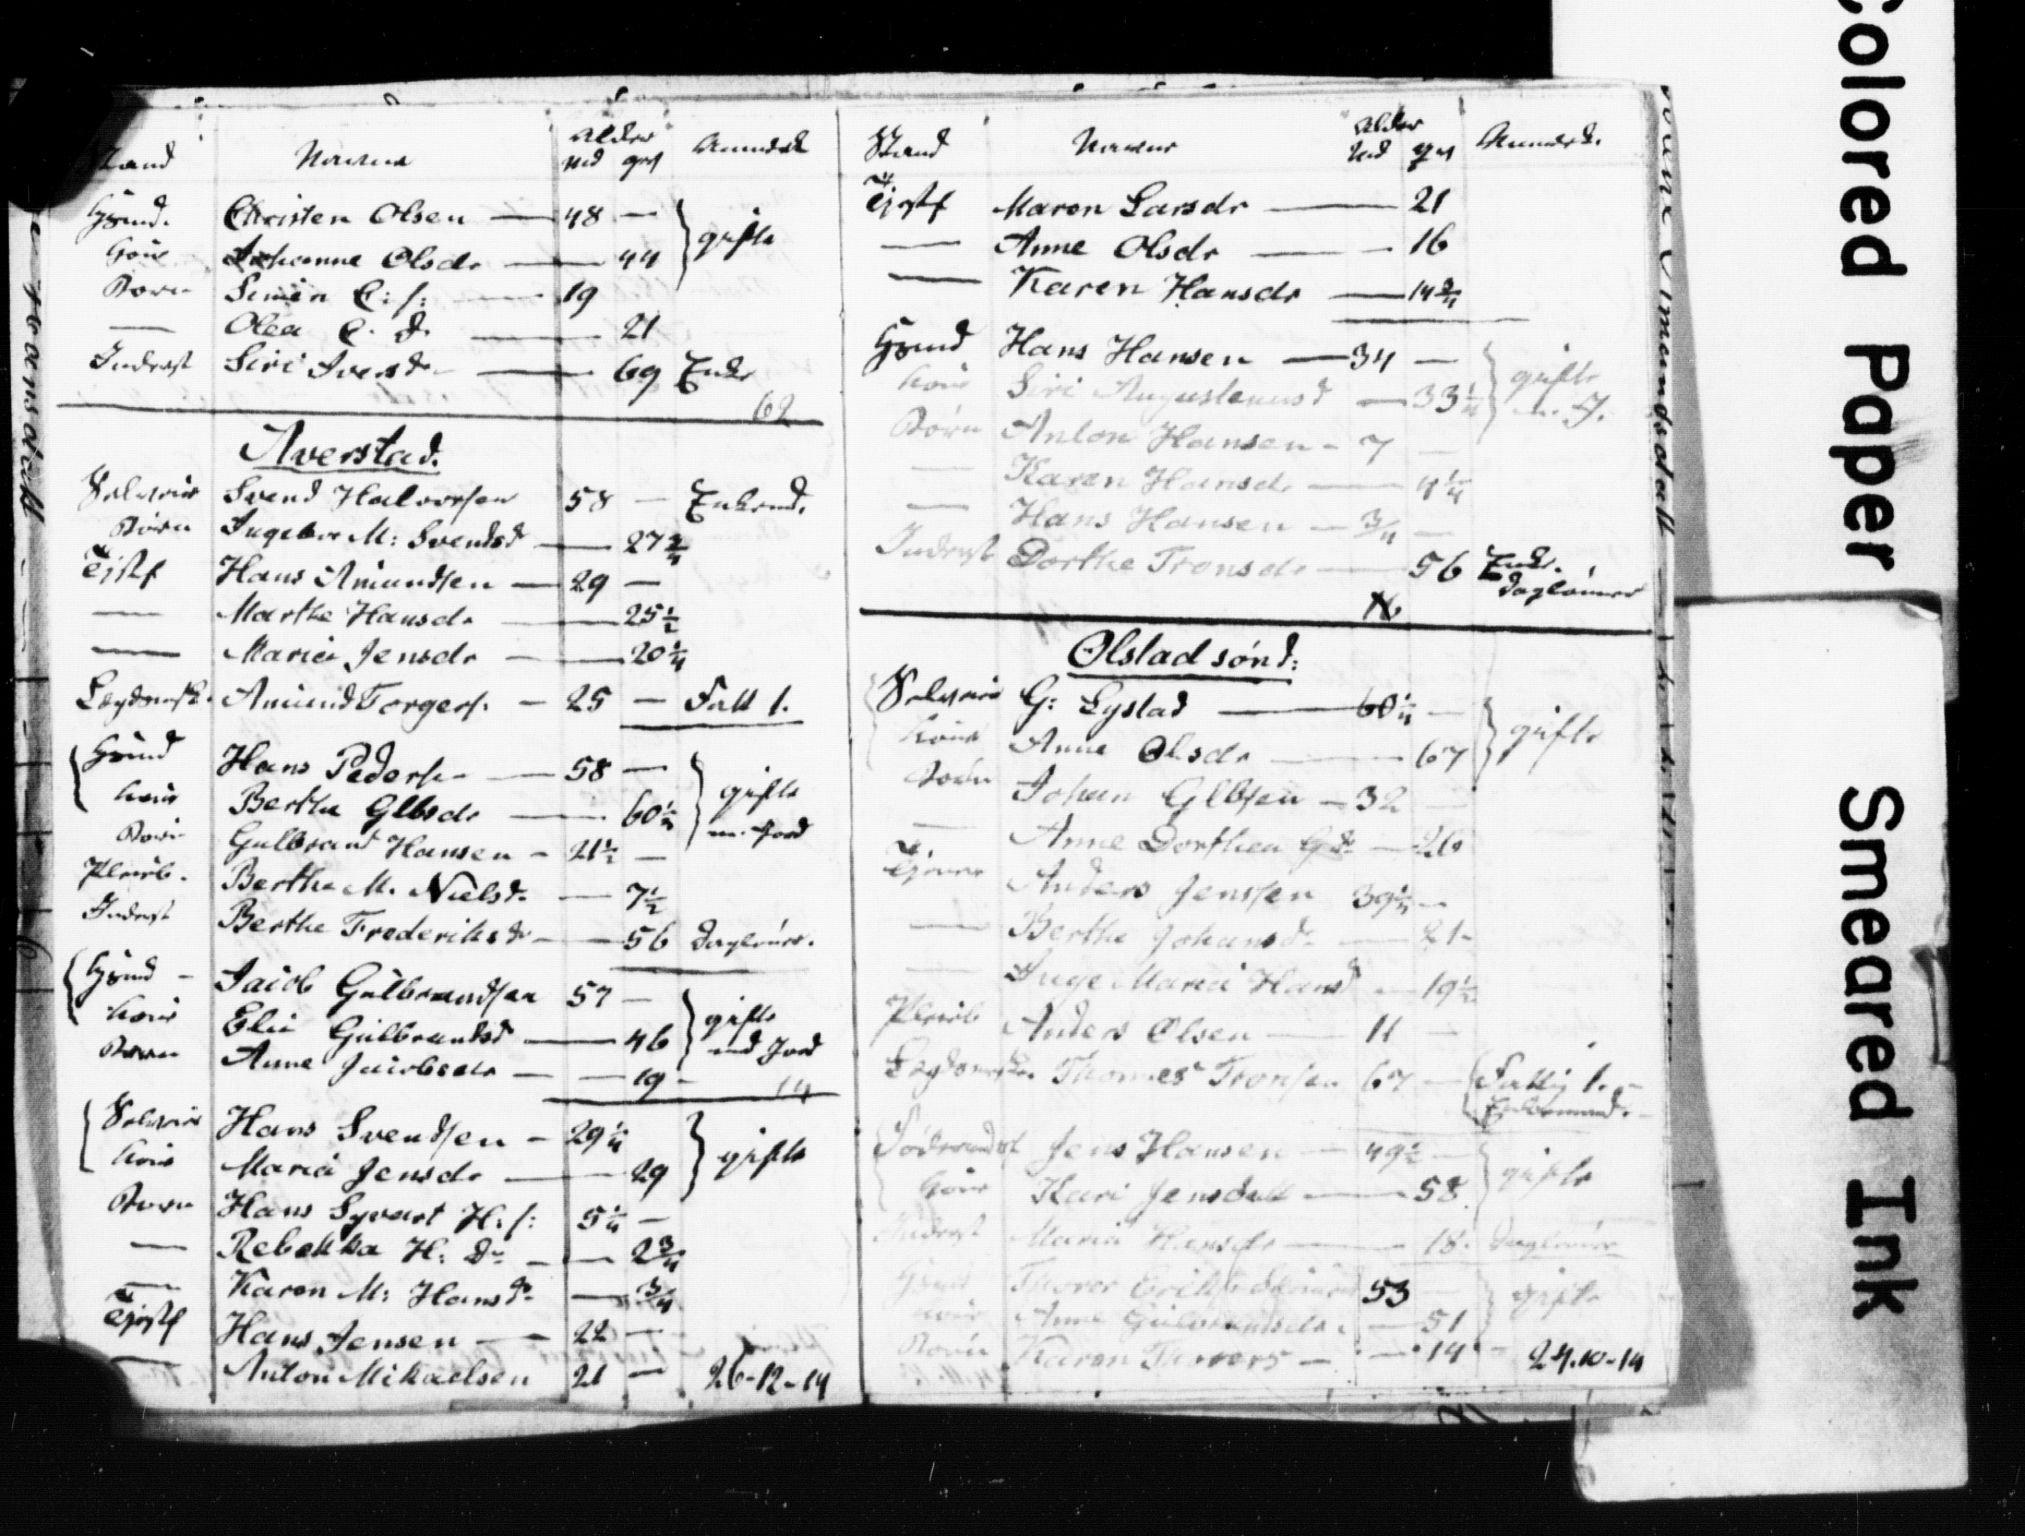 Stand Navne Alder Md qvd Anmærk
Huusmd. Christen Olsen — 48 — gifte
Kone Johanne Olsdr — 44
Børn Simen C: s: — 19
— Olea C. d. — 21
Inderst Siri Iversdr — 69 Enke
62
Averstad.
Selveier Svend Halvorsen 58 — Enkemd.
Børn Ingebor M: Svendsd — 27 3/4
Tjstf Hans Amundsen — 29 —
— Marthe Hansdr — 25 1/2
— Maria Jensdr — 20 1/4
Lægdsmsk. Amund Torgers. — 25 — Fatt 1.
Huusmd Hans Peders. — 58 — gifte
Kone Berthe Glbsdr — 60 1/2 m. Jord
Børn Gulbrand Hansen — 21 1/2 —
Pleieb. Berthe M. Nielsdr — 7 1/2
Inderst Berthe Frederiksdr — 56 Daglønr.
Huusmd — Jacob Gulbrandsen 57 — gifte
Kone Elie Gulbrandsd — 46 md Jord
Børn Anne Jacobsdr — 19 —
14
Selveier Hans Svendsen — 29 1/4 gifte
Kone Maria Jensdr — 29
Børn Hans Syvert H: s: 5 1/4 —
— Rebekka H: Dr — 2 3/4
— Karen M: Hansdr — 3/4
Tjstf Hans Jensen — 22 —
— Anton Mikaelsen 21 — 26-12-14
Stand Navne Alder Md qvd Anmærk.
Tjstf Maren Larsdr — 21
— Anne Olsdr — 16
— Karen Hansdr — 14 3/4
Huusmd Hans Hansen — 34 — gifte
Kone Siri Augustinusd — 33 1/4 m. J.
Børn Anton Hansen — 7 —
— Karen Hansdr — 4 1/4
— Hans Hansen — 3/4 —
Inderst Dorthe Tronsdr — 56 Enke.
Daglønner
Olstad sønd:
Selveier G: Lystad — 60 1/4 — gifte
Kone Anne Olsdr — 67
Børn Johan Glbsen — 32 —
— Anne Dorthea Gdr — 26
Tjenere Anders Jenssen 39 1/4 —
— Berthe Johansdr — 21 —
— Inge Maria Hansd — 19 1/2
Pleieb Anders Olsen — 11 —
Lægdsmsk. Thomes Tronsen 67 — Fattig 1. —
Enkemand. —
Føderaadsf Jens Hansen — 49 1/2 — gifte
Kone Kari Jensdatt — 58
Inderst Maria Hansdr — 18. Daglønner
Huusmd Thorer Eriks. 53 — gifte
Kone Anne Gulbrandsdr. — 51
Børn Karen Thorers — 14 — 24.10-14
Colored Paper
Smeared Ink